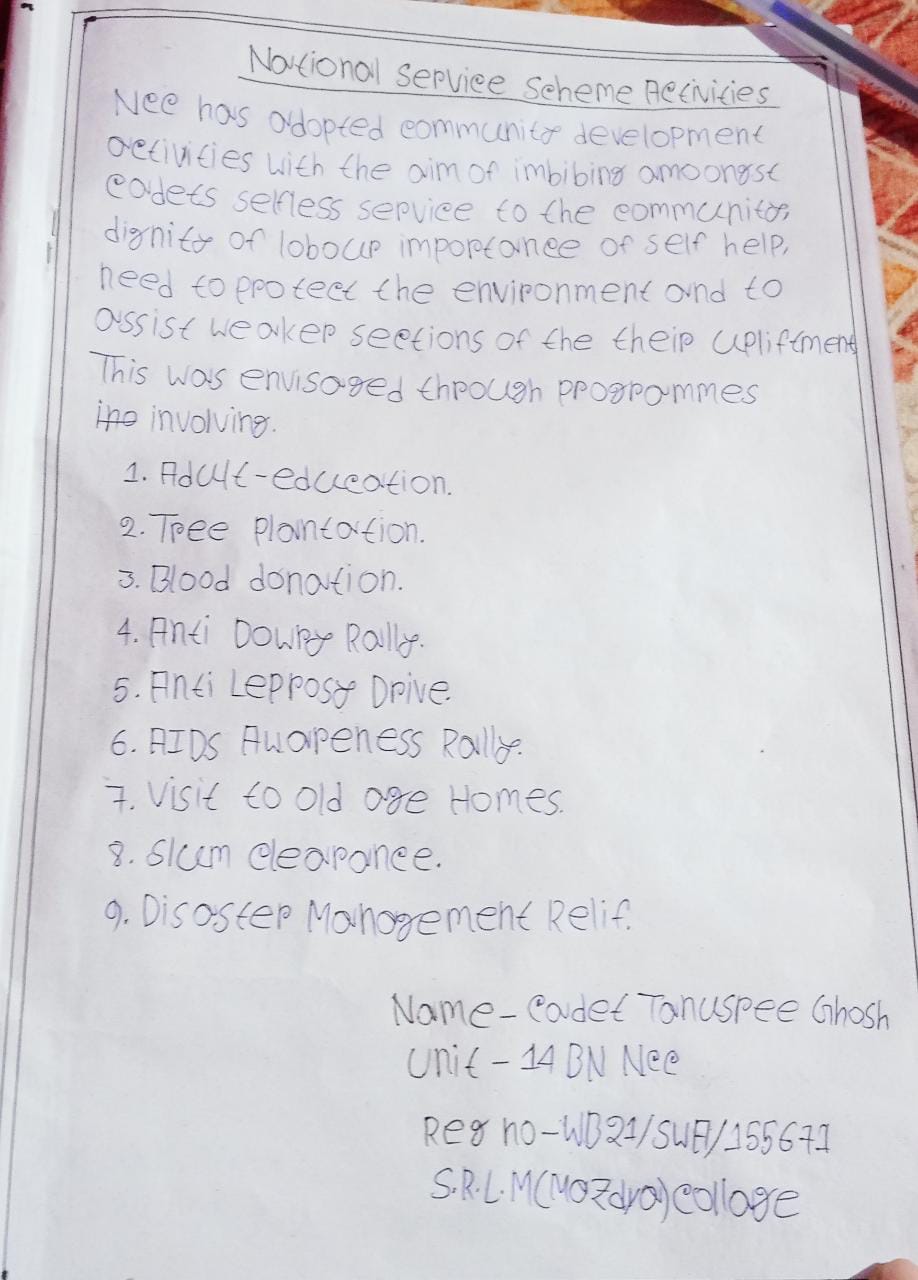 National Service Scheme Activities
Ncc has adopted community development
activities with the aim of imbibing amoongst
cadets selfless service to the community,
dignity of labour importance of self help,
need to protect the environment and to
assist weaker sections of the their upliftment
This was envisaged through programmes
involving.
1. Adult-education.
2. Tree plantation.
3. Blood donation.
4. Anti Dowry Rally.
5. Anti Leprosy Drive.
6. AIDS Awareness Rally.
7. Visit to old age Homes.
8. Slum clearance.
9. Disaster Management Relif.
Name - Cadet Tanusree Ghosh
Unit - 14 BN Ncc
Reg no - WB21/SWA/155671
S.R.L.M collage